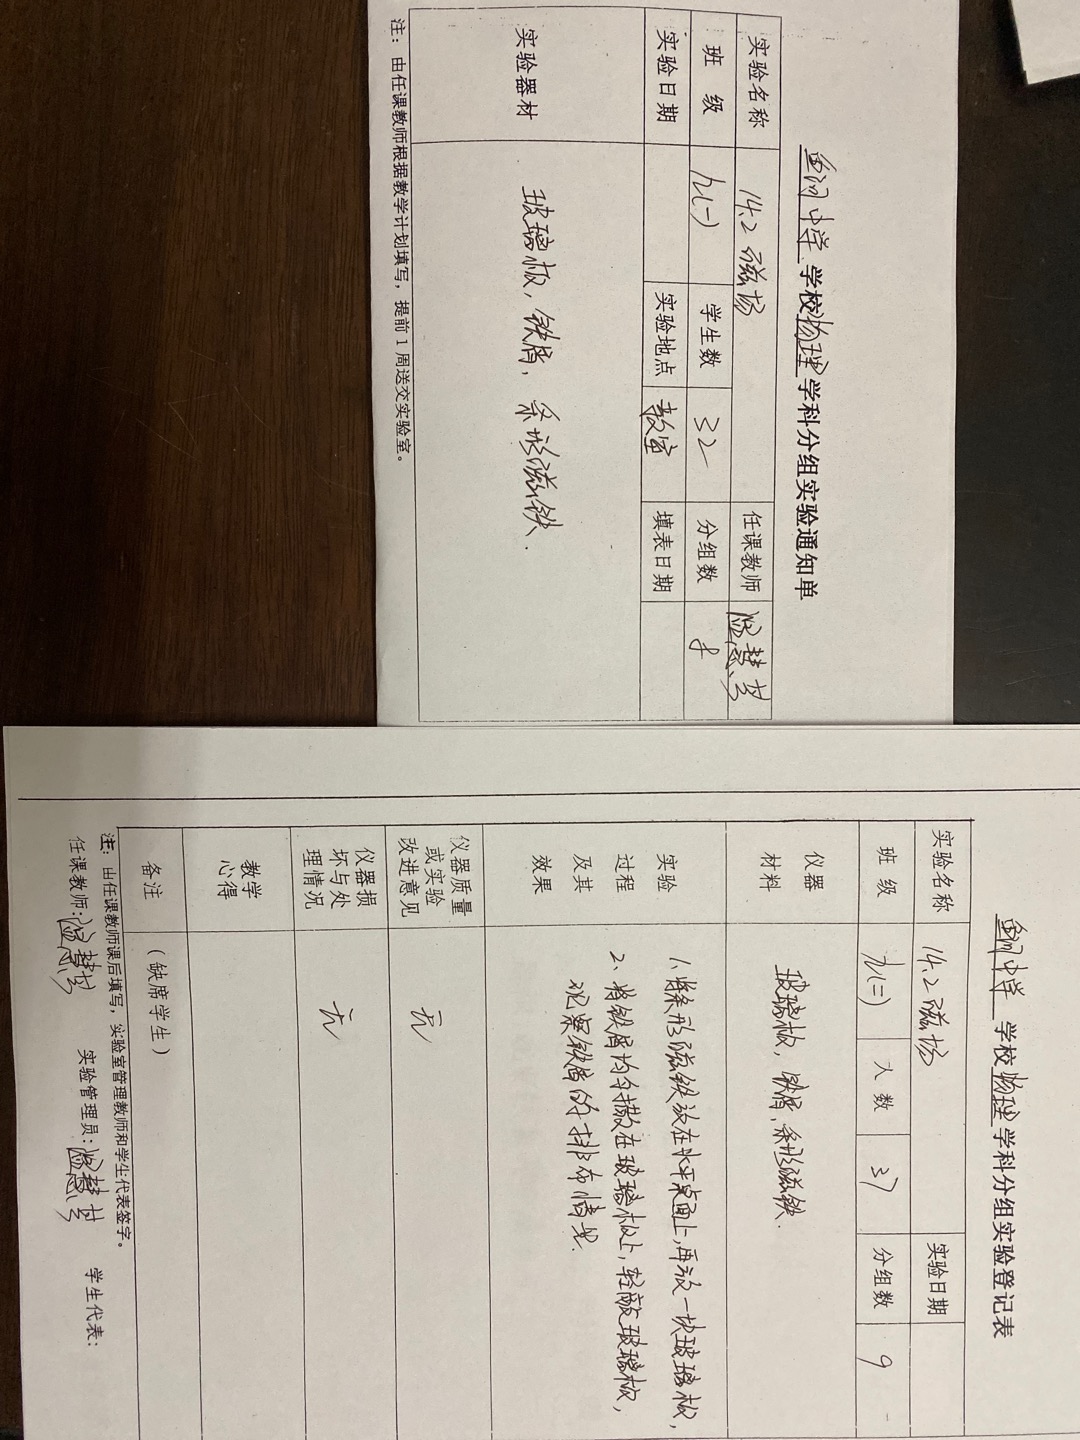 鱼河中学学校物理学科分组实验通知单
实验名称 14.2 磁场 任课教师
班 级 九(一) 学生数 32 分组数 8
实验日期 实验地点 教室 填表日期
实验器材 玻璃板，铁屑，条形磁铁．
注：由任课教师根据教学计划填写，提前1周送交实验室。
鱼河中学学校物理学科分组实验登记表
实验名称 14.2 磁场 实验日期
班 级 九(二) 人 数 37 分组数 9
仪器
材料
玻璃板，铁屑，条形磁铁．
实验
过程
及其
效果
1、将条形磁铁放在水平桌面上，再放一块玻璃板，
2、将铁屑均匀撒在玻璃板上，轻敲玻璃板，
观察铁屑的排布情况．
仪器质量
或实验
改进意见
无
仪器损
坏与处
理情况
无
教学
心得
备注 （缺席学生）
注：由任课教师课后填写，实验室管理教师和学生代表签字。
任课教师： 实验管理员： 学生代表：